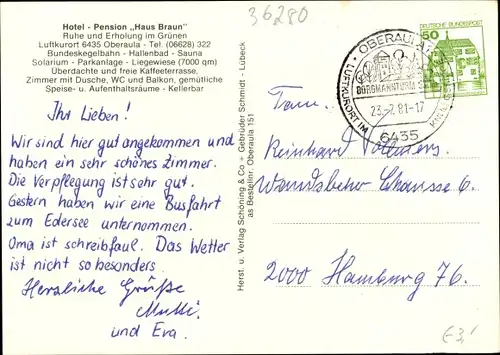 36280
Hotel - Pension „Haus Braun"
Ruhe und Erholung im Grünen
Luftkurort 6435 Oberaula - Tel. (06628) 322
Bundeskegelbahn - Hallenbad - Sauna
Solarium - Parkanlage - Liegewiese (7000 qm)
Überdachte und freie Kaffeeterrasse,
Zimmer mit Dusche, WC und Balkon, gemütliche
Speise- u. Aufenthaltsräume - Kellerbar
Ihr Lieben!
Wir sind hier gut angekommen und
haben ein sehr schönes Zimmer.
Die Verpflegung ist sehr gut.
Gestern haben wir eine Busfahrt
zum Edersee unternommen.
Oma ist schreibfaul. Das Wetter
ist nicht so besonders.
Herzliche Grüße
Mutti
und Eva.
Herst. u. Verlag Schöning & Co + Gebrüder Schmidt - Lübeck
as Bestellnr. Oberaula 151
DEUTSCHE BUNDESPOST
50
OBERAULA
BURGMANNTURM
23.-2.81-17
LUFTKURORT IM
6435
Fam.
Reinhard
Wandsbeker Chaussee 6
2000 Hamburg 76.